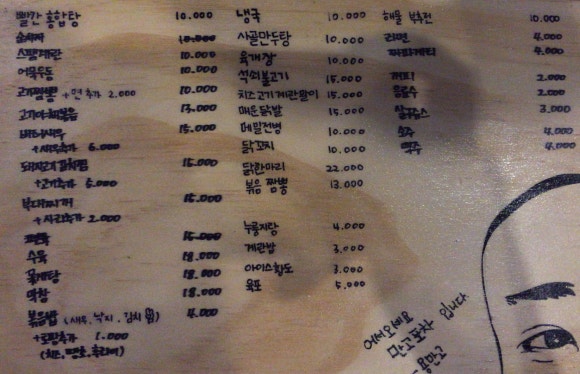 빨간 홍합탕 10.000
10.000
스팸계란 10.000
어묵우동 10.000
고기짬뽕 +면추가 2.000 10.000
고기야채볶음 13.000
15.000
+새우추가 6.000
돼지고기김치찜 15.000
+고기추가 5.000
부대찌개 15.000
+사리추가 2.000
15.000
수육 18.000
꽃게탕 18.000
막창 18.000
볶음밥 (새우, 낙지, 김치) 4.000
+토핑추가 1.000
냉국 10.000
사골만두탕 10.000
육개장 10.000
석쇠불고기 15.000
치즈고기계란말이 15.000
매운닭발 15.000
메밀전병 10.000
닭꼬치 10.000
닭한마리 22.000
볶음 짬뽕 13.000
누룽지탕 4.000
계란밥 3.000
아이스황도 3.000
육포 5.000
해물 부추전 10.000
라면 4.000
짜파게티 4.000
커피 2.000
음료수 2.000
3.000
소주 4.000
맥주 4.000
어서오세요
만고포차 입니다.